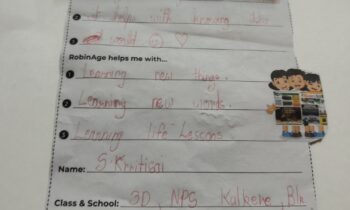 ② it helps with
③ world ☺ ♡
RobinAge helps me with...
① Learning new things.
② Lenurning new words.
③ Lerening life Lessons
Name: S Krritisai
Class & School: 3D, NPS Kulkere, Bln